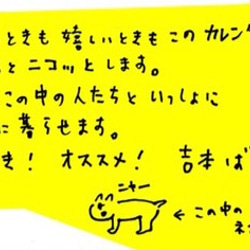 ときも嬉しいときもこのカレン
とニコッとします。
この中の人たちといっしょに
に暮らせます。
き! オススメ! 吉本ば
ニャー
←この中の
ネ